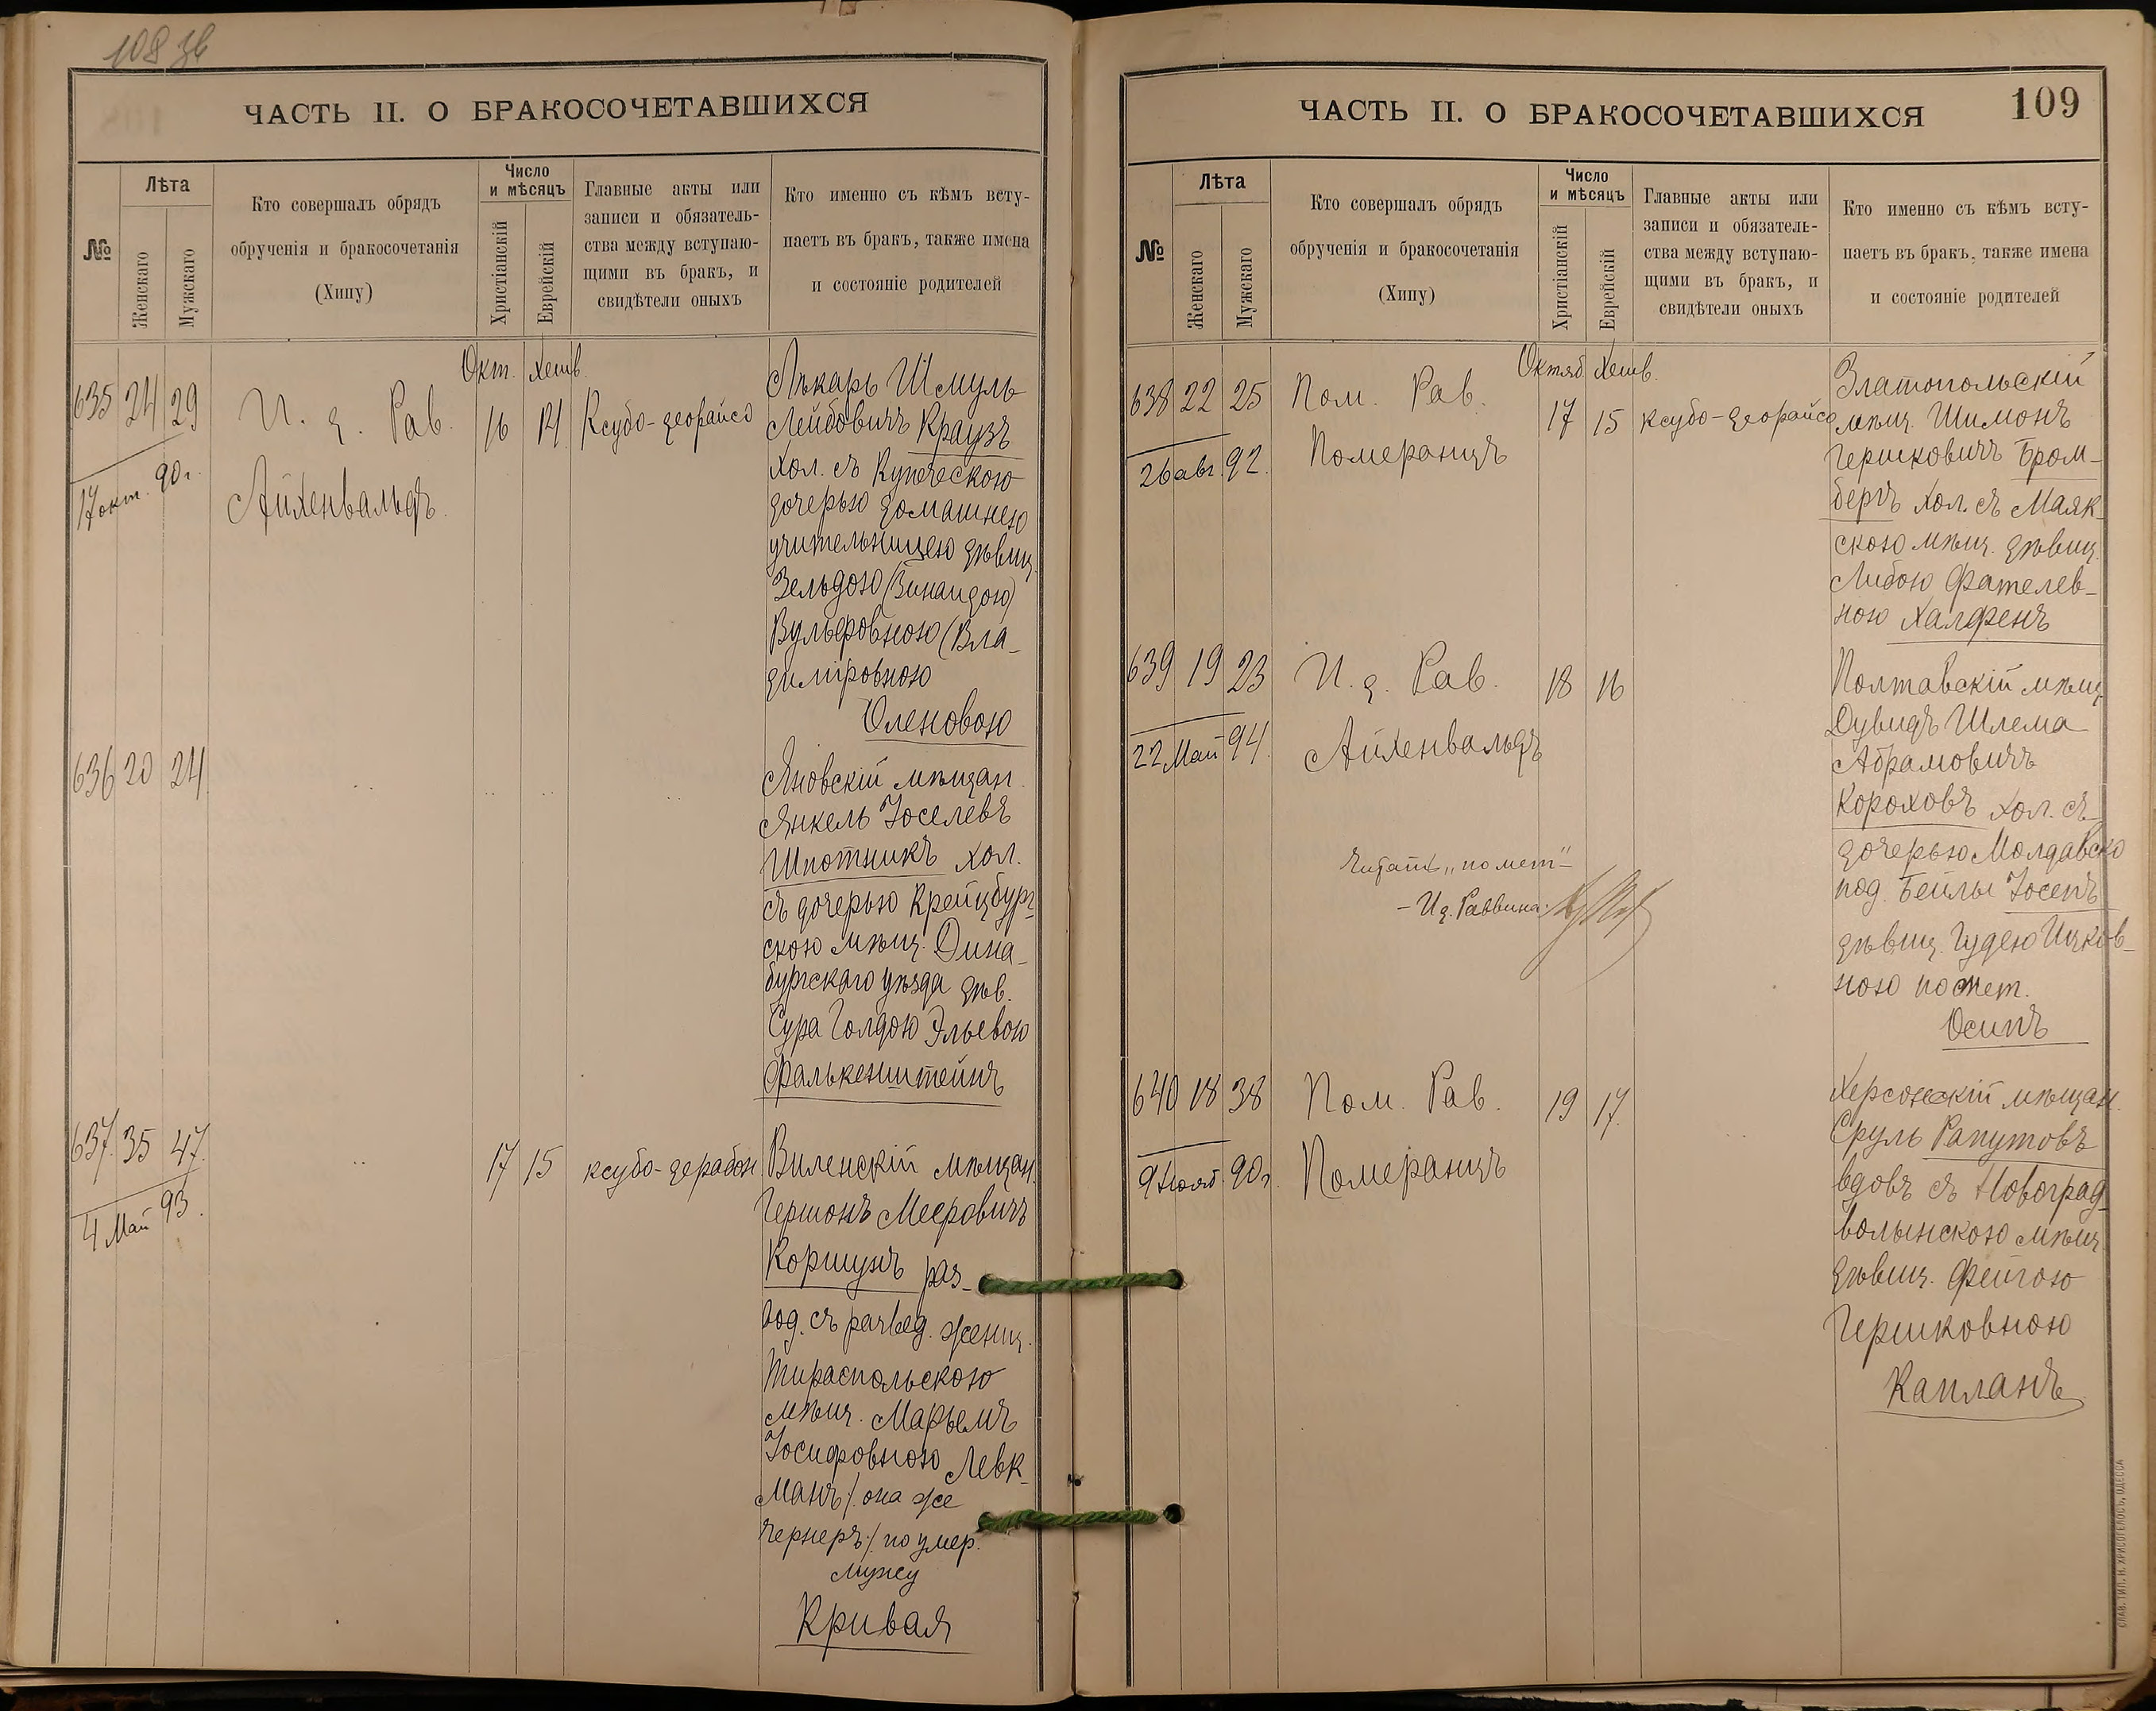 108 зв
ЧАСТЬ II. О БРАКОСОЧЕТАВШИХСЯ
№
Лѣта
Женскаго
Мужскаго
Кто совершалъ обрядъ
обрученія и бракосочетанія
(Хипу)
Число
и мѣсяцъ
Христіанскій
Еврейскій
Главные акты или
записи и обязатель-
ства между вступаю-
щими въ бракъ, и
свидѣтели оныхъ
Кто именно съ кѣмъ всту-
паетъ въ бракъ, также имена
и состояніе родителей
Окт. Хешв.
635 24 29 И. д. Рав. 16 14 Ксубо-деорайсо
17 окт. 90 г.
Айхенвальдъ.
Лѣкарь Шмуль
Лейбовичъ Краузъ
хол. съ Купеческою
дочерью домашнею
учительницею дѣвиц.
Зельдою (Зинаидою)
Вульфовною (Вла-
диміровною
Оленовою
636 20 24 .. .. .. ..
Яновскій мѣщан.
Янкель Іоселевъ
Шпотникъ хол.
съ дочерью Крейцбург-
скою мѣщ. Дина-
бургскаго уѣзда дѣв.
Сура Голдою Эльевою
Фалькенштейнъ
637. 35 47. .. 17 15 ксубо-дерабон
4 Май 93.
Виленскій мѣщан.
Гершонъ Мееровичъ
Коршунъ раз-
вод. съ развед. женщ.
Тираспольскою
мѣщ. Марьемъ
Іосифовною Левк-
манъ /: она же
Чернеръ :/ по умер.
мужу
Кривая
ЧАСТЬ II. О БРАКОСОЧЕТАВШИХСЯ
109
№
Лѣта
Женскаго
Мужскаго
Кто совершалъ обрядъ
обрученія и бракосочетанія
(Хипу)
Число
и мѣсяцъ
Христіанскій
Еврейскій
Главные акты или
записи и обязатель-
ства между вступаю-
щими въ бракъ, и
свидѣтели оныхъ
Кто именно съ кѣмъ всту-
паетъ въ бракъ, также имена
и состояніе родителей
Октяб. Хешв.
638 22 25 Пом. Рав. 17 15 ксубо-деорайсо
26 авг. 92.
Померанцъ
Златопольскій
мѣщ. Шимонъ
Гершковичъ Бром-
бергъ хол. съ Маяк-
скою мѣщ. дѣвиц.
Либою Фателев-
ною Халфенъ
639 19 23 И. д. Рав. 18 16
22 Май 94.
Айхенвальдъ
Полтавскій мѣщ.
Дувидъ Шлема
Абрамовичъ
Короховъ хол. съ
дочерью Молдавско
под. Бейлы Іосепъ
дѣвиц. Гудею Ицков-
ною по мет.
Осипъ
Читать „по мет“
- И д. Раввина:
640 18 38 Пом. Рав. 19 17. ..
9 Нояб. 90 г.
Померанцъ
Херсонскій мѣщан.
Сруль Рапутовъ
вдовъ съ Новоград-
волынскою мѣщ.
дѣвиц. Фейгою
Гершковною
Капланъ
СЛАВ. ТИП. Н. ХРИСОГЕЛОСЪ, ОДЕССА